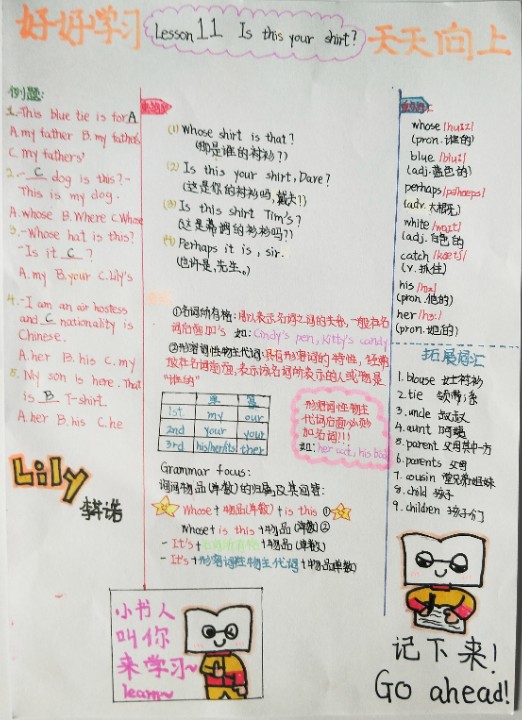 好好学习
Lesson 11 Is this your shirt?
天天向上
例题:
1.-This blue tie is for A
A.my father B.my father's
C.my fathers'
2.- C dog is this?-
This is my dog.
A.whose B.Where C.Whose
3.-Whose hat is this?
-Is it C ?
A.my B.your C.Lily's
4.-I am an air hostess
and C nationality is
Chinese.
A.her B.his C.my
5. My son is here. That
is B T-shirt.
A.her B.his C.he
Lily
李诺
(1) Whose shirt is that?
(哪是谁的衬衫??)
(2) Is this your shirt, Dave?
(这是你的衬衫吗,戴夫?)
(3) Is this shirt Tim's?
(这是蒂姆的衫衫吗??)
(4) Perhaps it is, sir.
(也许是,先生。)
①名词所有格:用以表示名词之间的关系,一般在名
词后面加's 如: Cindy's pen, Kitty's candy
②形容词性物主代词:具有形容词的特性,经常
放在名词前面,表示该名词所表示的人或物是
"谁的"
单 复
1st my our
2nd your your
3rd his/her/its their
形容词性物主
代词后面必须
加名词!!!
如: her cat, his
Grammar focus:
询问物品(单数)的归属及其回答:
whose+物品(单数)+is this ①
whose+is this+物品(单数)②
- It's+名词所有格+物品(单数)
- It's+形容词性物主代词+物品(单数)
小书人
叫你
来学习~
learn~
whose /huːz/
(pron.谁的)
blue /bluː/
(adj.蓝色的)
perhaps
(adv.大概)
white /waɪt/
(adj.白色的
catch /kætʃ/
(v.抓住)
his /hɪz/
(pron.他的)
her /hɜː/
(pron.她的)
拓展词汇
1.blouse 女士衬衫
2.tie 领带;系
3.uncle 叔叔
4.aunt 阿姨
5.parent 父母其中一方
6.parents 父母
7.cousin 堂兄弟姐妹
8.child 孩子
9.children 孩子们
记下来!
Go ahead!